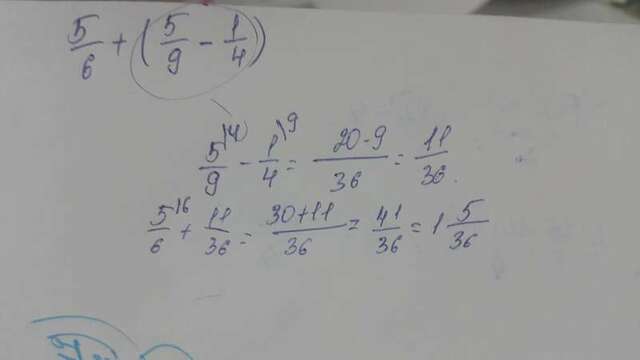 5/6 + (5/9 - 1/4)
5/9 \4) - 1/4 \9 = 20-9/36 = 11/36.
5/6 \6 + 11/36 = 30+11/36 = 41/36 = 1 5/36